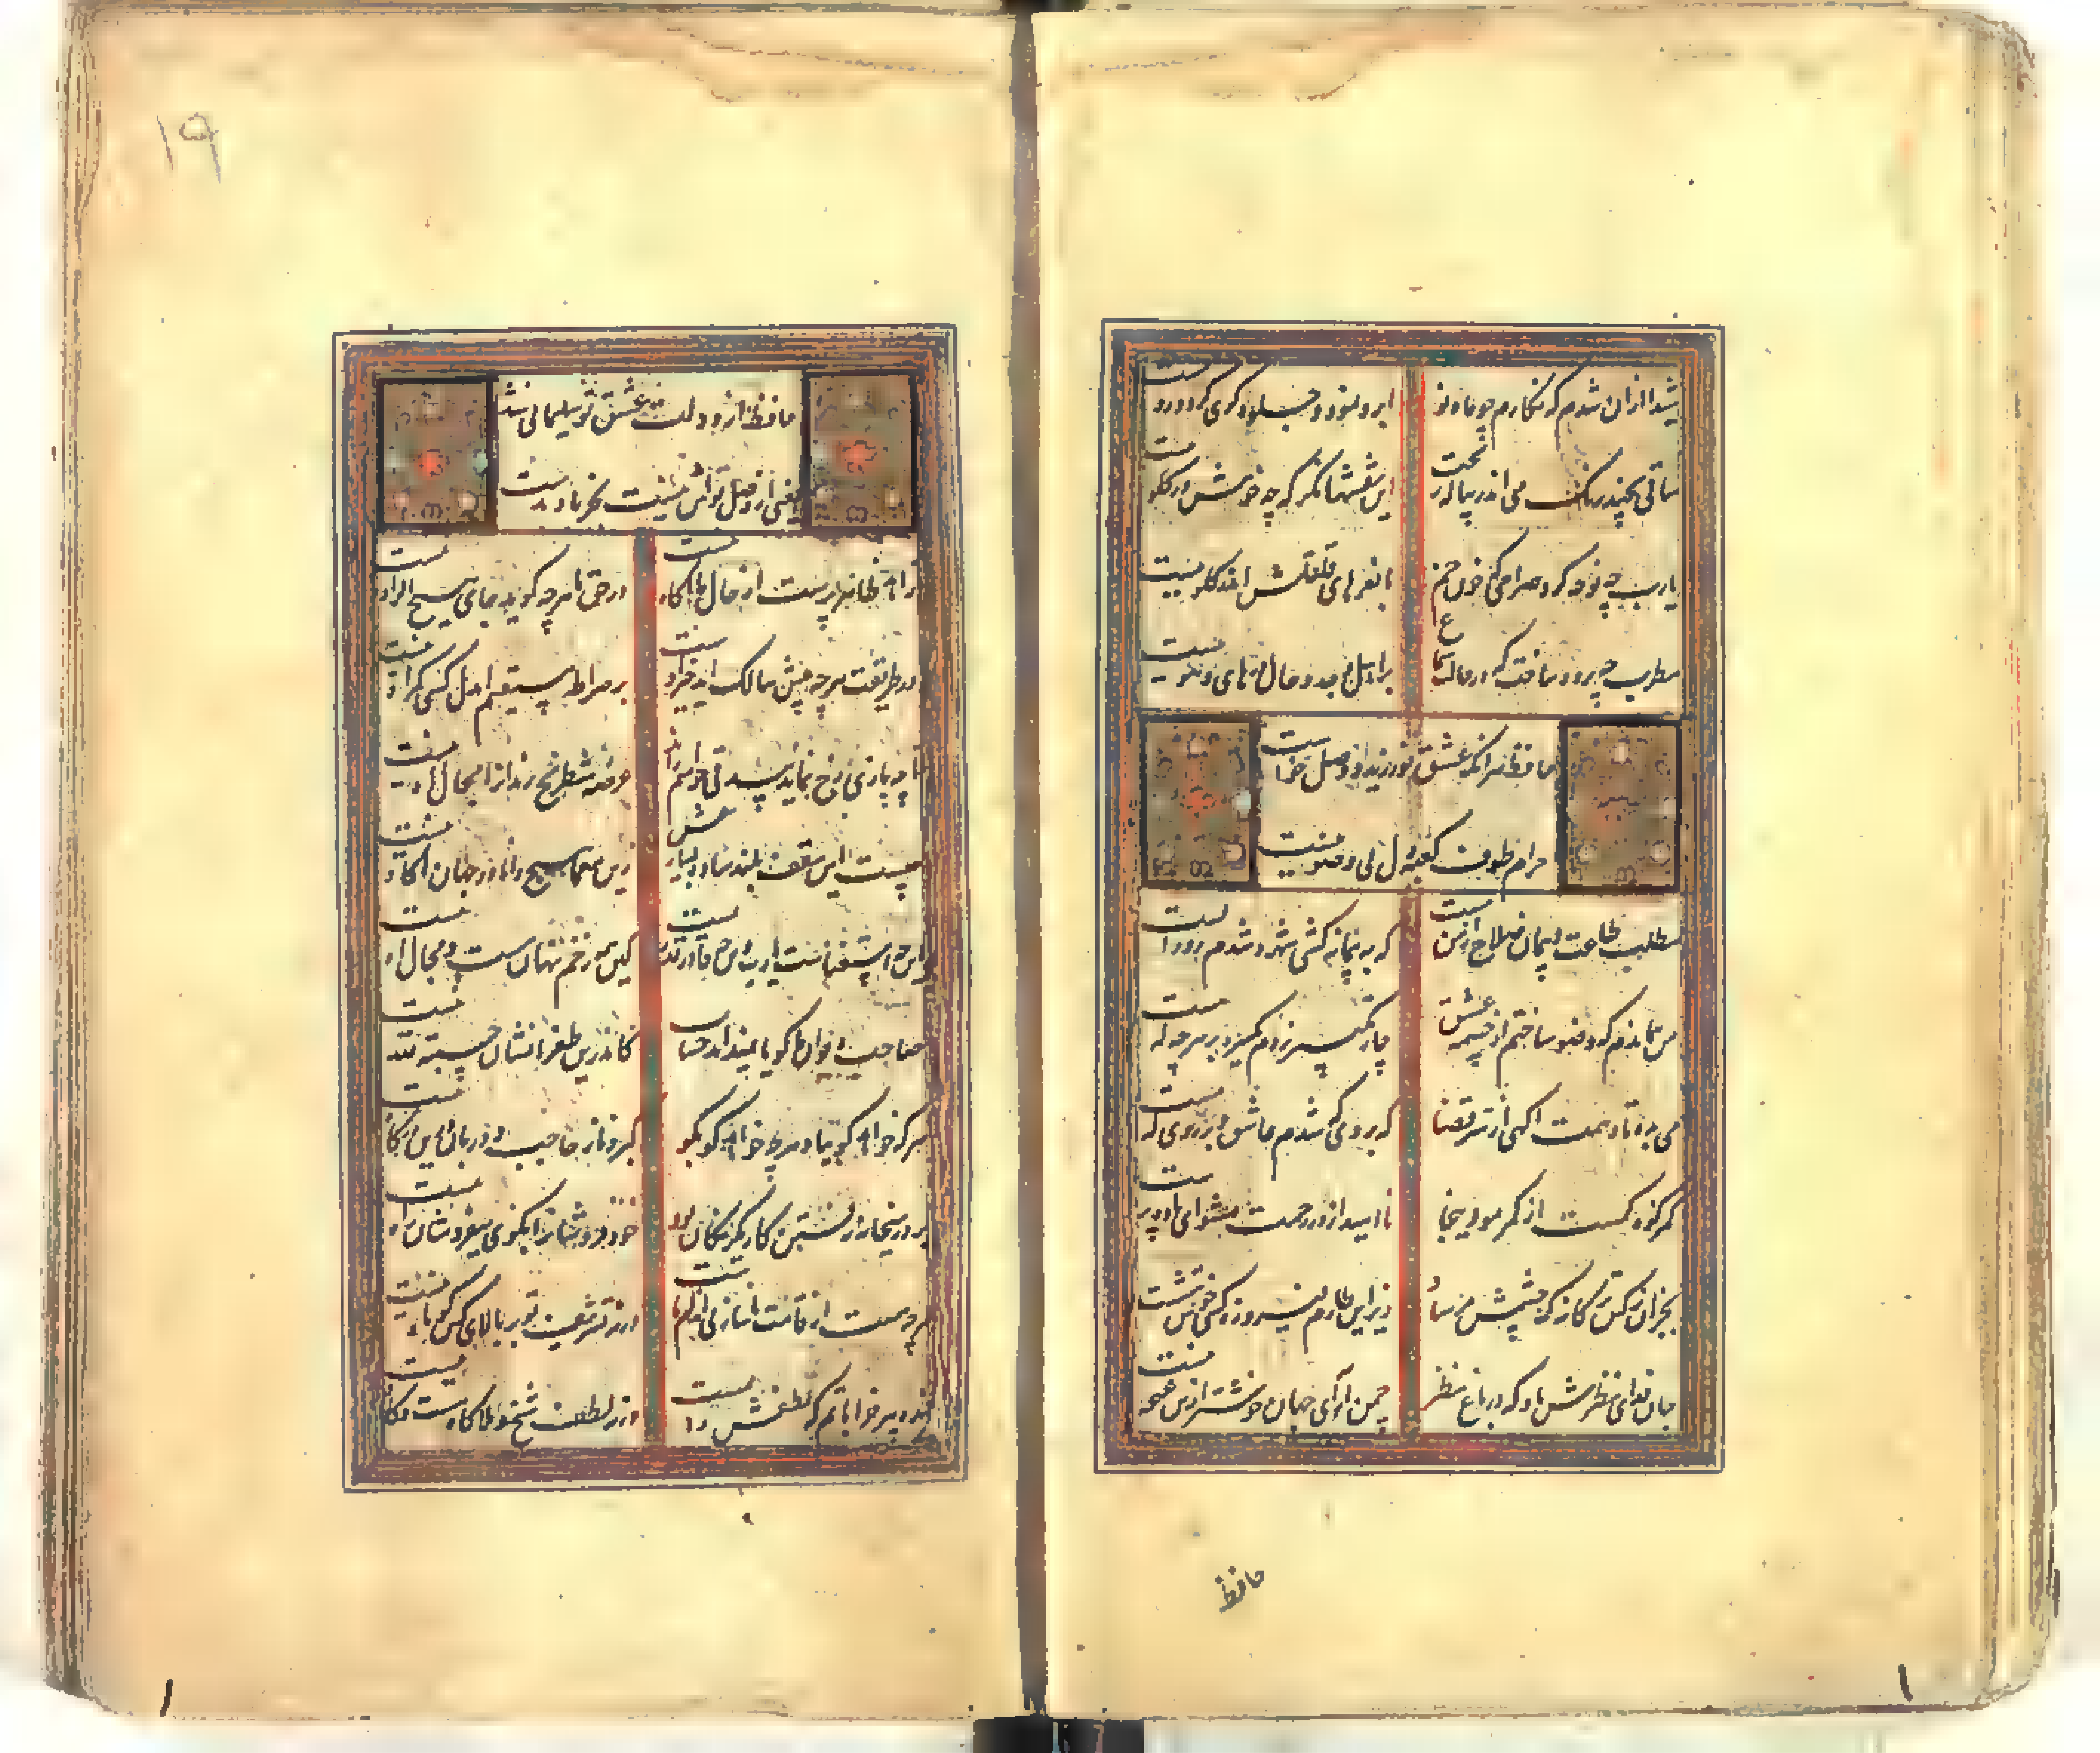 شیدا ازان شدم که نگارم چو ماه نو
ابرو نمود و جلوه‌گری کرد و رو ببست
ساقی بچند رنگ می اندر پیاله ریخت
این نقشها نگر که چه خوش در کدو ببست
یارب چه غمزه کرد صراحی که خون خم
با نعرهای قلقلش اندر گلو ببست
مطرب چه پرده ساخت که در حالت سماع
بر اهل وجد و حال در های و هو ببست
حافظ هر آنکه عشق نورزید و وصل خواست
احرام طوف کعبه دل بی وضو ببست
مطلب طاعت و پیمان و صلاح از من مست
که به پیمانه کشی شهره شدم روز الست
من هماندم که وضو ساختم از چشمه عشق
چار تکبیر زدم یکسره بر هر چه که هست
می بده تا دهمت آگهی از سر قضا
که بروی که شدم عاشق و بر بوی که مست
کمر کوه کمست از کمر مور اینجا
ناامید از در رحمت مشو ای باده پرست
بجز آن نرگس مستانه که چشمش مرساد
زیر این طارم فیروزه کسی خوش ننشست
جان فدای نظرش باد که در باغ نظر
چمن آرای جهان خوشتر ازین غنچه نبست
حافظ
۱۹
حافظ از دولت عشق تو سلیمانی شد
یعنی از وصل تواش نیست بجز باد بدست
زاهد ظاهر پرست از حال ما آگاه نیست
در حق ما هر چه گوید جای هیچ اکراه نیست
در طریقت هر چه پیش سالک آید خیر اوست
بر صراط مستقیم ای دل کسی گمراه نیست
تا چه بازی رخ نماید بیدقی خواهیم راند
عرصه شطرنج رندان را مجال شاه نیست
چیست این سقف بلند ساده بسیار نقش
زین معما هیچ دانا در جهان آگاه نیست
این چه استغناست یارب وین چه قادر حکمت است
کین همه زخم نهان هست و مجال آه نیست
صاحب دیوان ما گویا نمیداند حساب
کاندرین طغرا نشان حسبة لله نیست
هر که خواهد گو بیا و هر چه خواهد گو بگو
کبر و ناز حاجب و دربان درین درگاه نیست
بر در میخانه رفتن کار یکرنگان بود
خود فروشان را بکوی می‌فروشان راه نیست
هر چه هست از قامت ناساز بی اندام ماست
ورنه تشریف تو بر بالای کس کوتاه نیست
بنده پیر خراباتم که لطفش دایم است
ورنه لطف شیخ و زاهد گاه هست و گاه نیست